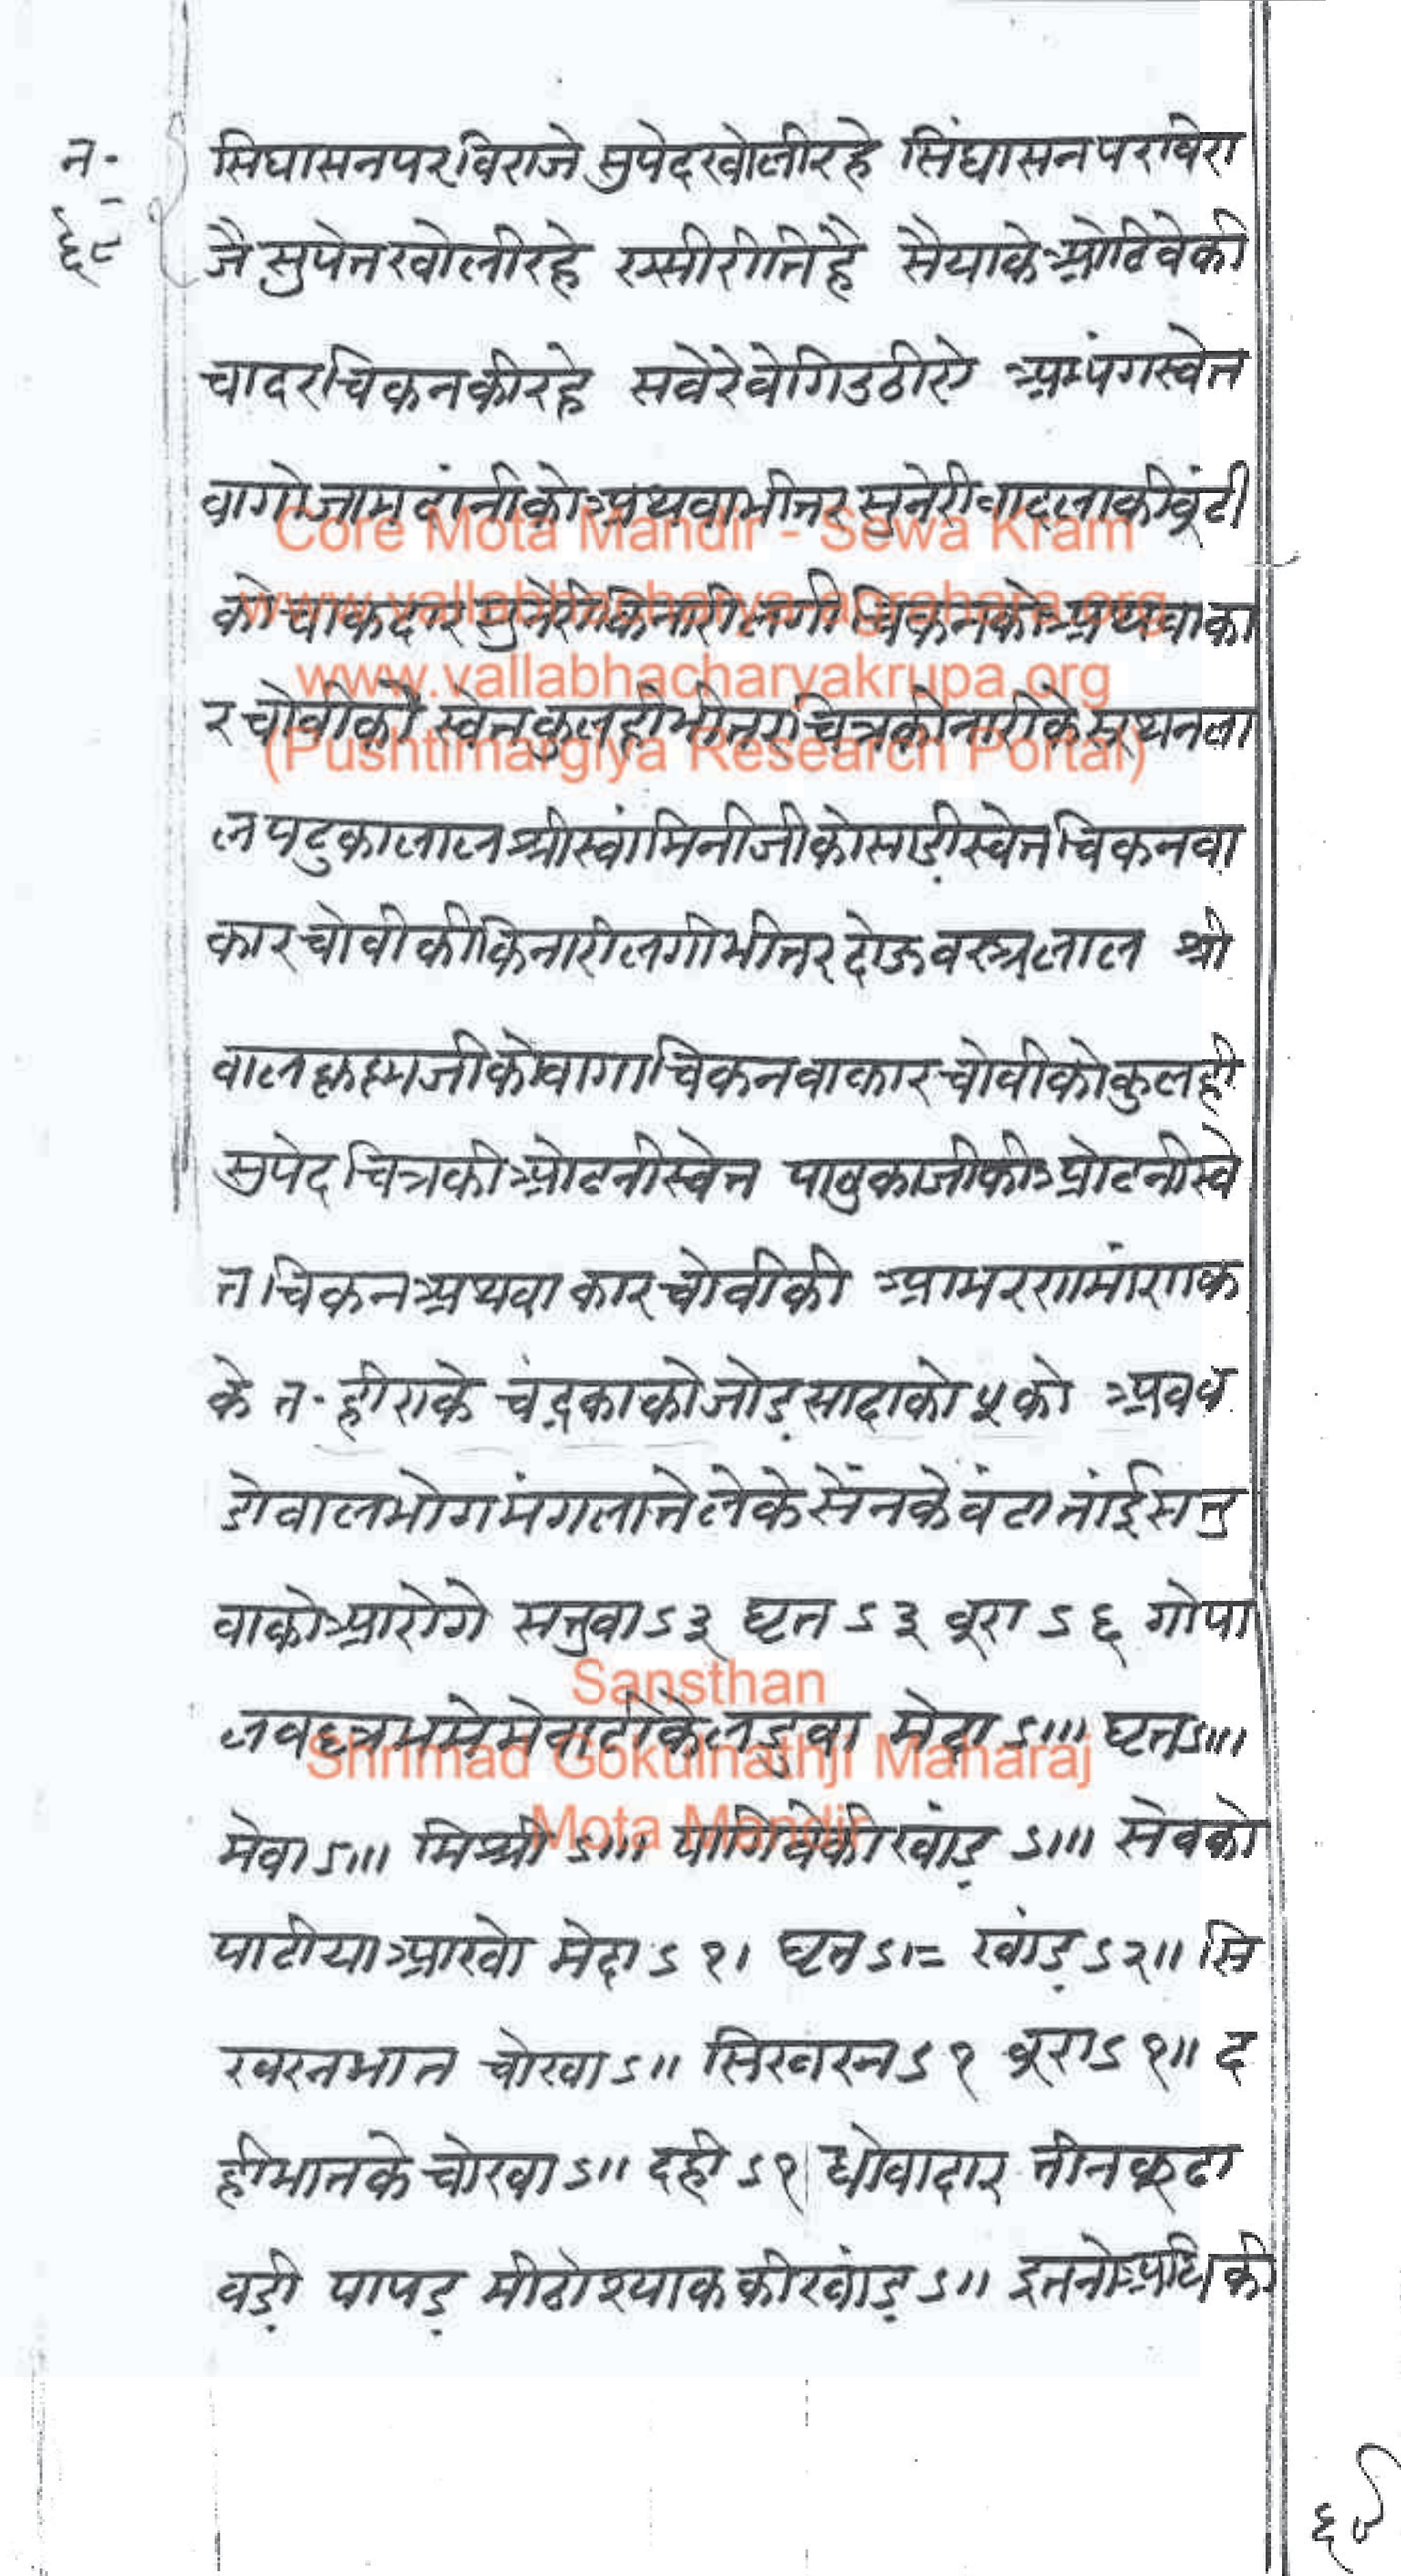 न॰
६८
सिघासनपरविराजे सुपेदखोलीरहे सिंघासनपरविरा
जै सुपेतखोलीरहे रसीरीतिहै सैयाके ओढिवेकी
चादरचिकनकीरहे सवेरेवेगिउठीऐ अभ्यंगस्वेत
वागोजामदांनीकोअथवाभीतर सुनेरीवादलाकीबूंटी
को चाकदार सुनेरीकिनारीलगी चिकनकोअथवाका
रचोवीको स्वेतकुलहीभीतरचित्रकीनारीके सूथनला
लपटुकालाल श्रीस्वांमिनीजीकोसाड़ीस्वेतचिकनवा
कारचोवीकीकिनारीलगीभीतरदोऊवस्त्रलाल श्री
वालकृष्णजीकोवागाचिकनवाकारचोवीकोकुलही
सुपेदचित्रकीओढनीस्वेत पादुकाजीकीओढनीस्वे
तचिकनअथवा कारचोवीकी आभरणमांणक
के त॰ हीराके चंद्रकाकोजोड़सादाको ५ को अवव
डोवालभोगमंगलातेलेकेसेंनकेवंटातांईसतु
वाकोआरोगे सतुवाऽ३ घृतऽ३ बूराऽ६ गोपा
लवल्लभमेमेवाटीकेलडुवा मेदाऽ।।। घृतऽ।।।
मेवाऽ।।। मिश्रीऽ।।। पागिवेकीखांड़ऽ।।। सेवको
पाटीयाआखो मेदाऽ१। घृतऽ।= खांड़ऽ२।। सि
खरनभात चोखाऽ।। सिखरनऽ१ बूराऽ१।। द
हीभातके चोखाऽ।। दहीऽ१। धोवादार तीनकूढा
वड़ी पापड़ मीठोश्याककीखांड़ऽ।। इतनोअधिकी
६९
Core Mota Mandir - Sewa Kram
www.vallabhacharya-agrahara.org
www.vallabhacharyakrupa.org
(Pushtimargiya Research Portal)
Sansthan
Shrimad Gokulnathji Maharaj
Mota Mandir